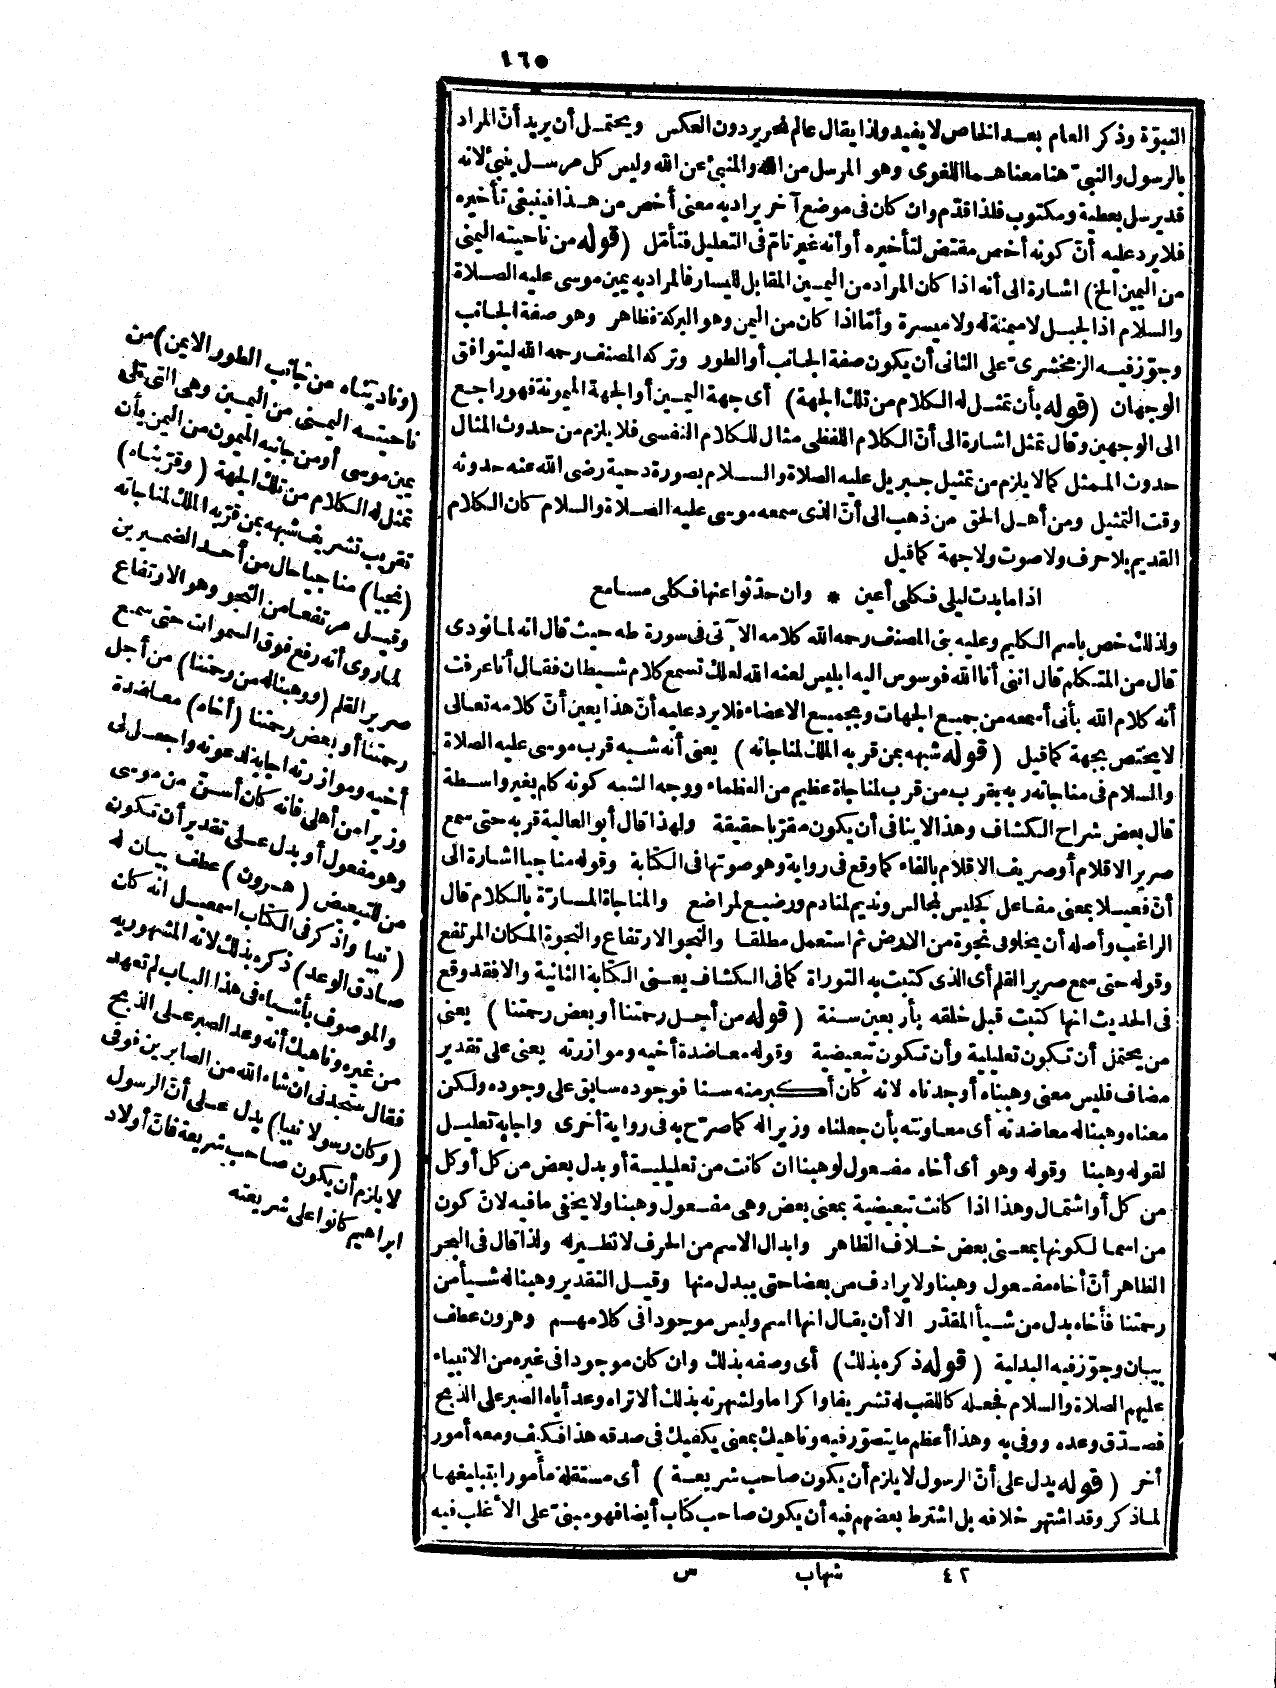 ١٦٥
النبوّة وذكر العام بعد الخاص لا يفيد ولذا يقال عالم نحرير دون العكس ويحتمل أن يريد أنّ المراد
بالرسول والنبيّ هنا معناهما اللغوى وهو المرسل من الله والمنبئ عن الله وليس كل مرسل ينبئ لانه
قد يرسل بعطية ومكتوب فلذا قدّم وان كان فى موضع آخر يراد به معنى أخص من هذا فينبغى تأخيره
فلا يرد عليه أنّ كونه أخص مقتض لتأخيره أو أنه غير تامّ فى التعليل فتأمّل (قوله من ناحيته اليمنى
من اليمين الخ) اشارة الى أنه اذا كان المراد من اليمين المقابل لليسار فالمراد به يمين موسى عليه الصلاة
والسلام اذ الجبل لا ميمنة له ولا ميسرة وأمّا اذا كان من اليمن وهو البركة فظاهر وهو صفة الجانب
وجوّز فيه الزمخشرىّ على الثانى أن يكون صفة الجانب أو الطور وتركه المصنف رحمه الله ليتوافق
الوجهان (قوله بأن تمثل له الكلام من تلك الجهة) أى جهة اليمين أو الجهة الميمونة فهو راجع
الى الوجهين وقال تمثل اشارة الى أنّ الكلام اللفظى مثال للكلام النفسى فلا يلزم من حدوث المثال
حدوث الممثل كما لا يلزم من تمثيل جبريل عليه الصلاة والسلام بصورة دحية رضى الله عنه حدوثه
وقت التمثيل ومن أهل الحق من ذهب الى أنّ الذى سمعه موسى عليه الصلاة والسلام كان الكلام
القديم بلا حرف ولا صوت ولا جهة كما قيل
اذا ما بدت ليلى فكلى أعين * وان حدّثوا عنها فكلى مسامع
ولذلك خص باسم الكليم وعليه بنى المصنف رحمه الله كلامه الآتى فى سورة طه حيث قال انه لما نودى
قال من المتكلم قال اننى أنا الله فوسوس اليه ابليس لعنه الله لعلك تسمع كلام شيطان فقال أنا عرفت
أنه كلام الله بأنى أسمعه من جميع الجهات وبجميع الاعضاء فلا يرد عليه أنّ هذا بعين أنّ كلامه تعالى
لا يختص بجهة كما قيل (قوله شبهه بمن قربه الملك لمناجاته) يعنى أنه شبه قرب موسى عليه الصلاة
والسلام فى مناجاته ربه بقرب من قرب لمناجاة عظيم من العظماء ووجه الشبه كونه كلم بغير واسطة
قال بعض شراح الكشاف وهذا لا ينافى أن يكون مقرّبا حقيقة ولهذا قال أبو العالية قربه حتى سمع
صرير الاقلام أو صريف الاقلام بالفاء كما وقع فى رواية وهو صوتها فى الكتابة وقوله مناجيا اشارة الى
أنّ فعيلا بمعنى مفاعل كجليس لمجالس ونديم لمنادم ورضيع لمراضع والمناجاة المسارّة بالكلام قال
الراغب وأصله أن يخلو فى نجوة من الارض ثم استعمل مطلقا والنجو الارتفاع والنجوة المكان المرتفع
وقوله حتى سمع صرير القلم أى الذى كتبت به التوراة كما فى الكشاف يعنى الكتابة الثانية والا فقد وقع
فى الحديث انها كتبت قبل خلقه بأربعين سنة (قوله من أجل رحمتنا أو بعض رحمتنا) يعنى
من يحتمل أن تكون تعليلية وأن تكون تبعيضية وقوله معاضدة أخيه وموازرته يعنى على تقدير
مضاف فليس معنى وهبناه أوجدناه لانه كان أكبر منه سنا فوجوده سابق على وجوده ولكن
معناه وهبنا له معاضدته أى معاونته بأن جعلناه وزيرا له كما صرّح به فى رواية أخرى واجابة تعليل
لقوله وهبنا وقوله وهو أى أخاه مفعول لوهبنا ان كانت من تعليلية أو بدل بعض من كل أو كل
من كل أو اشتمال وهذا اذا كانت تبعيضية بمعنى بعض وهى مفعول وهبنا ولا يخفى ما فيه لانّ كون
من اسما لكونها بمعنى بعض خلاف الظاهر وابدال الاسم من الحرف لا نظير له ولذا قال فى البحر
الظاهر أنّ أخاه مفعول وهبنا ولا يرادف من بعضا حتى يبدل منها وقيل التقدير وهبنا له شيأ من
رحمتنا فأخاه بدل من شيأ المقدّر الا أن يقال انها اسم وليس موجودا فى كلامهم وهرون عطف
بيان وجوّز فيه البدلية (قوله ذكره بذلك) أى وصفه بذلك وان كان موجودا فى غيره من الانبياء
عليهم الصلاة والسلام فجعله كاللقب له تشريفا واكراما ولشهرته بذلك ألا تراه وعد أباه الصبر على الذبح
فصدّق وعده ووفى به وهذا أعظم ما يتصوّر فيه وناهيك بمعنى يكفيك فى صدقه هذا فكيف ومعه أمور
أخر (قوله يدل على أنّ الرسول لا يلزم أن يكون صاحب شريعة) أى مستقلة مأمورا بتبليغها
لما ذكر وقد اشتهر خلافه بل اشترط بعضهم فيه أن يكون صاحب كتاب أيضا فهو مبنىّ على الأغلب فيه
(وناديناه من جانب الطور الايمن) من
ناحيته اليمنى من اليمين وهى التى تلى
يمين موسى أو من جانبه الميمون من اليمن بأن
تمثل له الكلام من تلك الجهة (وقرّبناه)
تقريب تشريف شبهه بمن قربه الملك لمناجاته
(نجيا) مناجيا حال من أحد الضميرين
وقيل مرتفعا من النجو وهو الارتفاع
لما روى أنه رفع فوق السموات حتى سمع
صرير القلم (ووهبنا له من رحمتنا) من أجل
رحمتنا أو بعض رحمتنا (أخاه) معاضدة
أخيه وموازرته اجابة لدعوته واجعل لى
وزيرا من أهلى فانه كان أسنّ من موسى
وهو مفعول أو بدل على تقدير أن تكون
من للتبعيض (هرون) عطف بيان له
(نبيا واذكر فى الكتاب اسمعيل انه كان
صادق الوعد) ذكره بذلك لانه المشهور به
والموصوف بأشياء فى هذا الباب لم تعهد
من غيره وناهيك أنه وعد الصبر على الذبح
فقال ستجدنى ان شاء الله من الصابرين فوفى
(وكان رسولا نبيا) يدل على أنّ الرسول
لا يلزم أن يكون صاحب شريعة فانّ أولاد
ابراهيم كانوا على شريعته
٤٢ شهاب س